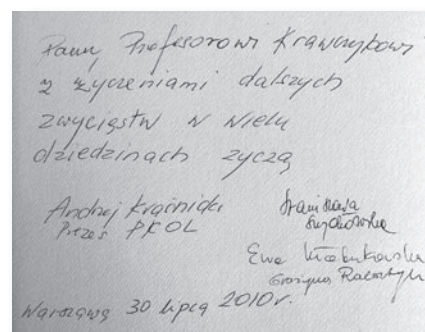 Panu Profesorowi Krawczykowi
z życzeniami dalszych
zwycięstw w wielu
dziedzinach życzą
Andrzej Kraśnicki
Prezes PKOL
Ewa Kłobukowska
Grażyna Rabsztyn
Warszawa 30 lipca 2010 r.